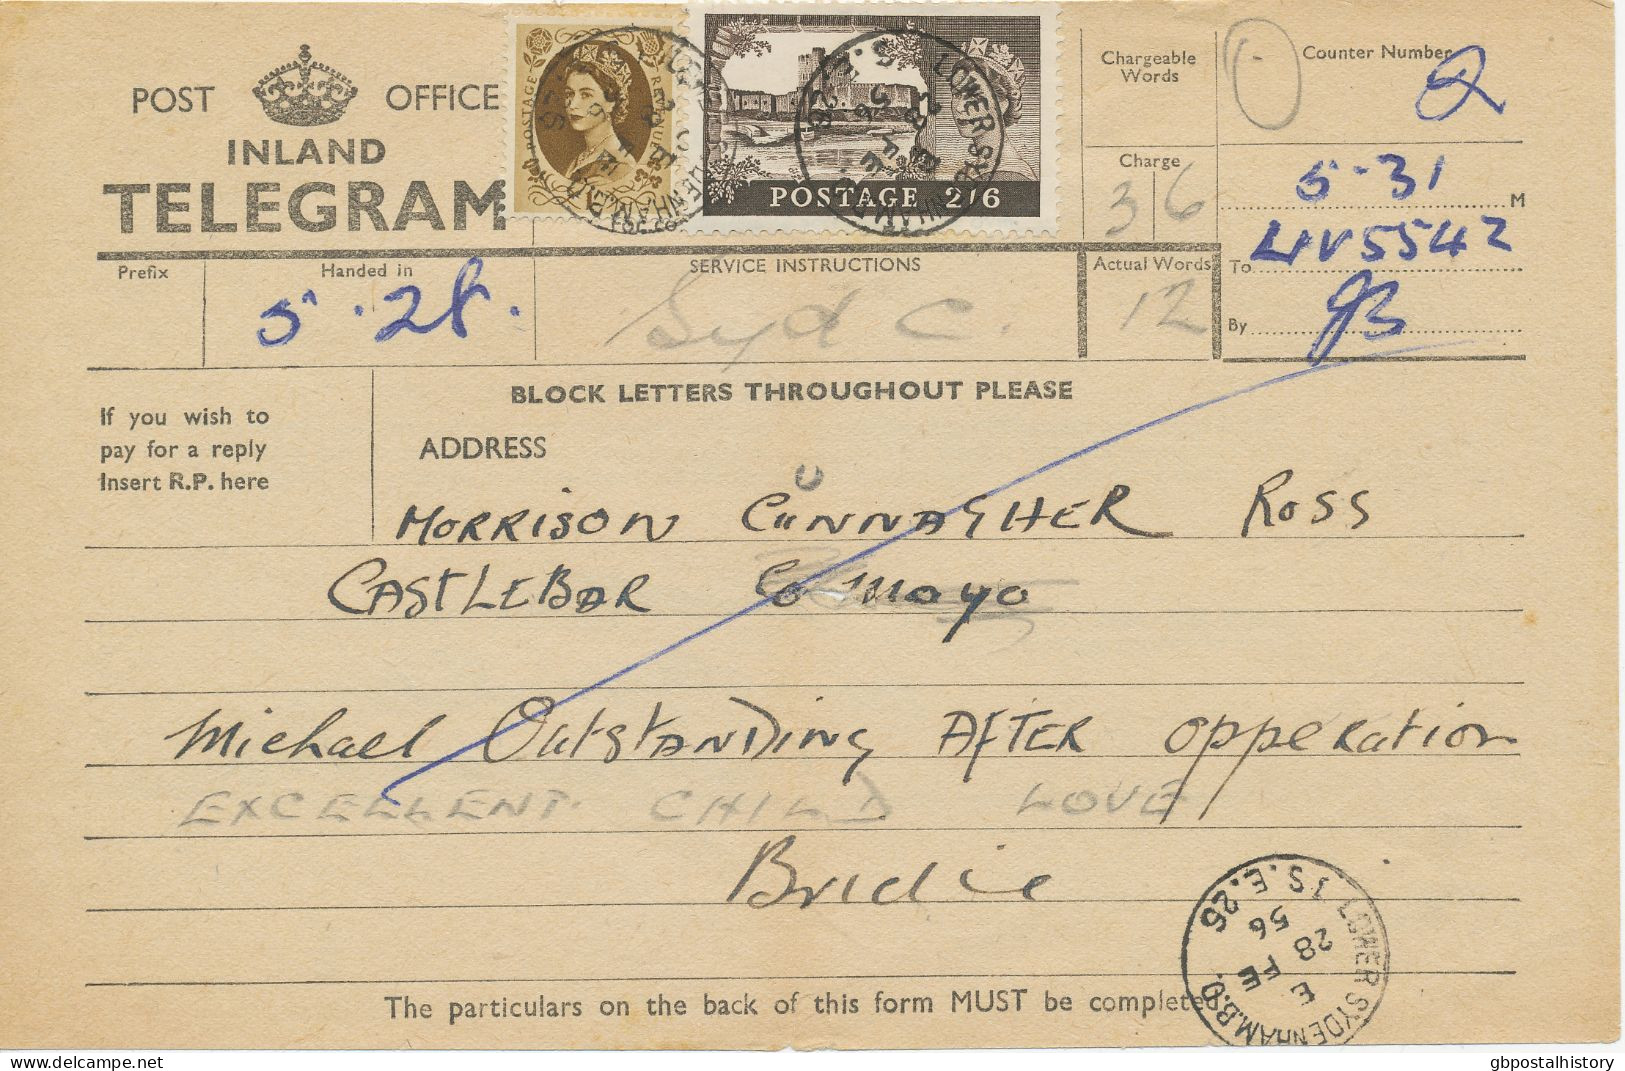 POST OFFICE
INLAND
TELEGRAM
POSTAGE REVENUE
POSTAGE 2/6
LOWER SYDENHAM.B.O.
S.E.26
28 FE
56
Chargeable
Words
Counter Number
2
Charge
3 6
5.31 M
Prefix
Handed in
5.28.
SERVICE INSTRUCTIONS
Syd C.
Actual Words
12
To LIV 5542
By JB
BLOCK LETTERS THROUGHOUT PLEASE
If you wish to
pay for a reply
Insert R.P. here
ADDRESS
U
MORRISON CUNNAGHER ROSS
CASTLEBAR Co Mayo
Michael OutSTANDing AFTER OppeRation
EXCELLENT CHILD LOVE
Bridie
The particulars on the back of this form MUST be completed.
LOWER SYDENHAM.B.O.
S.E.26
E
28 FE
56
delcampe.net
gbpostalhistory